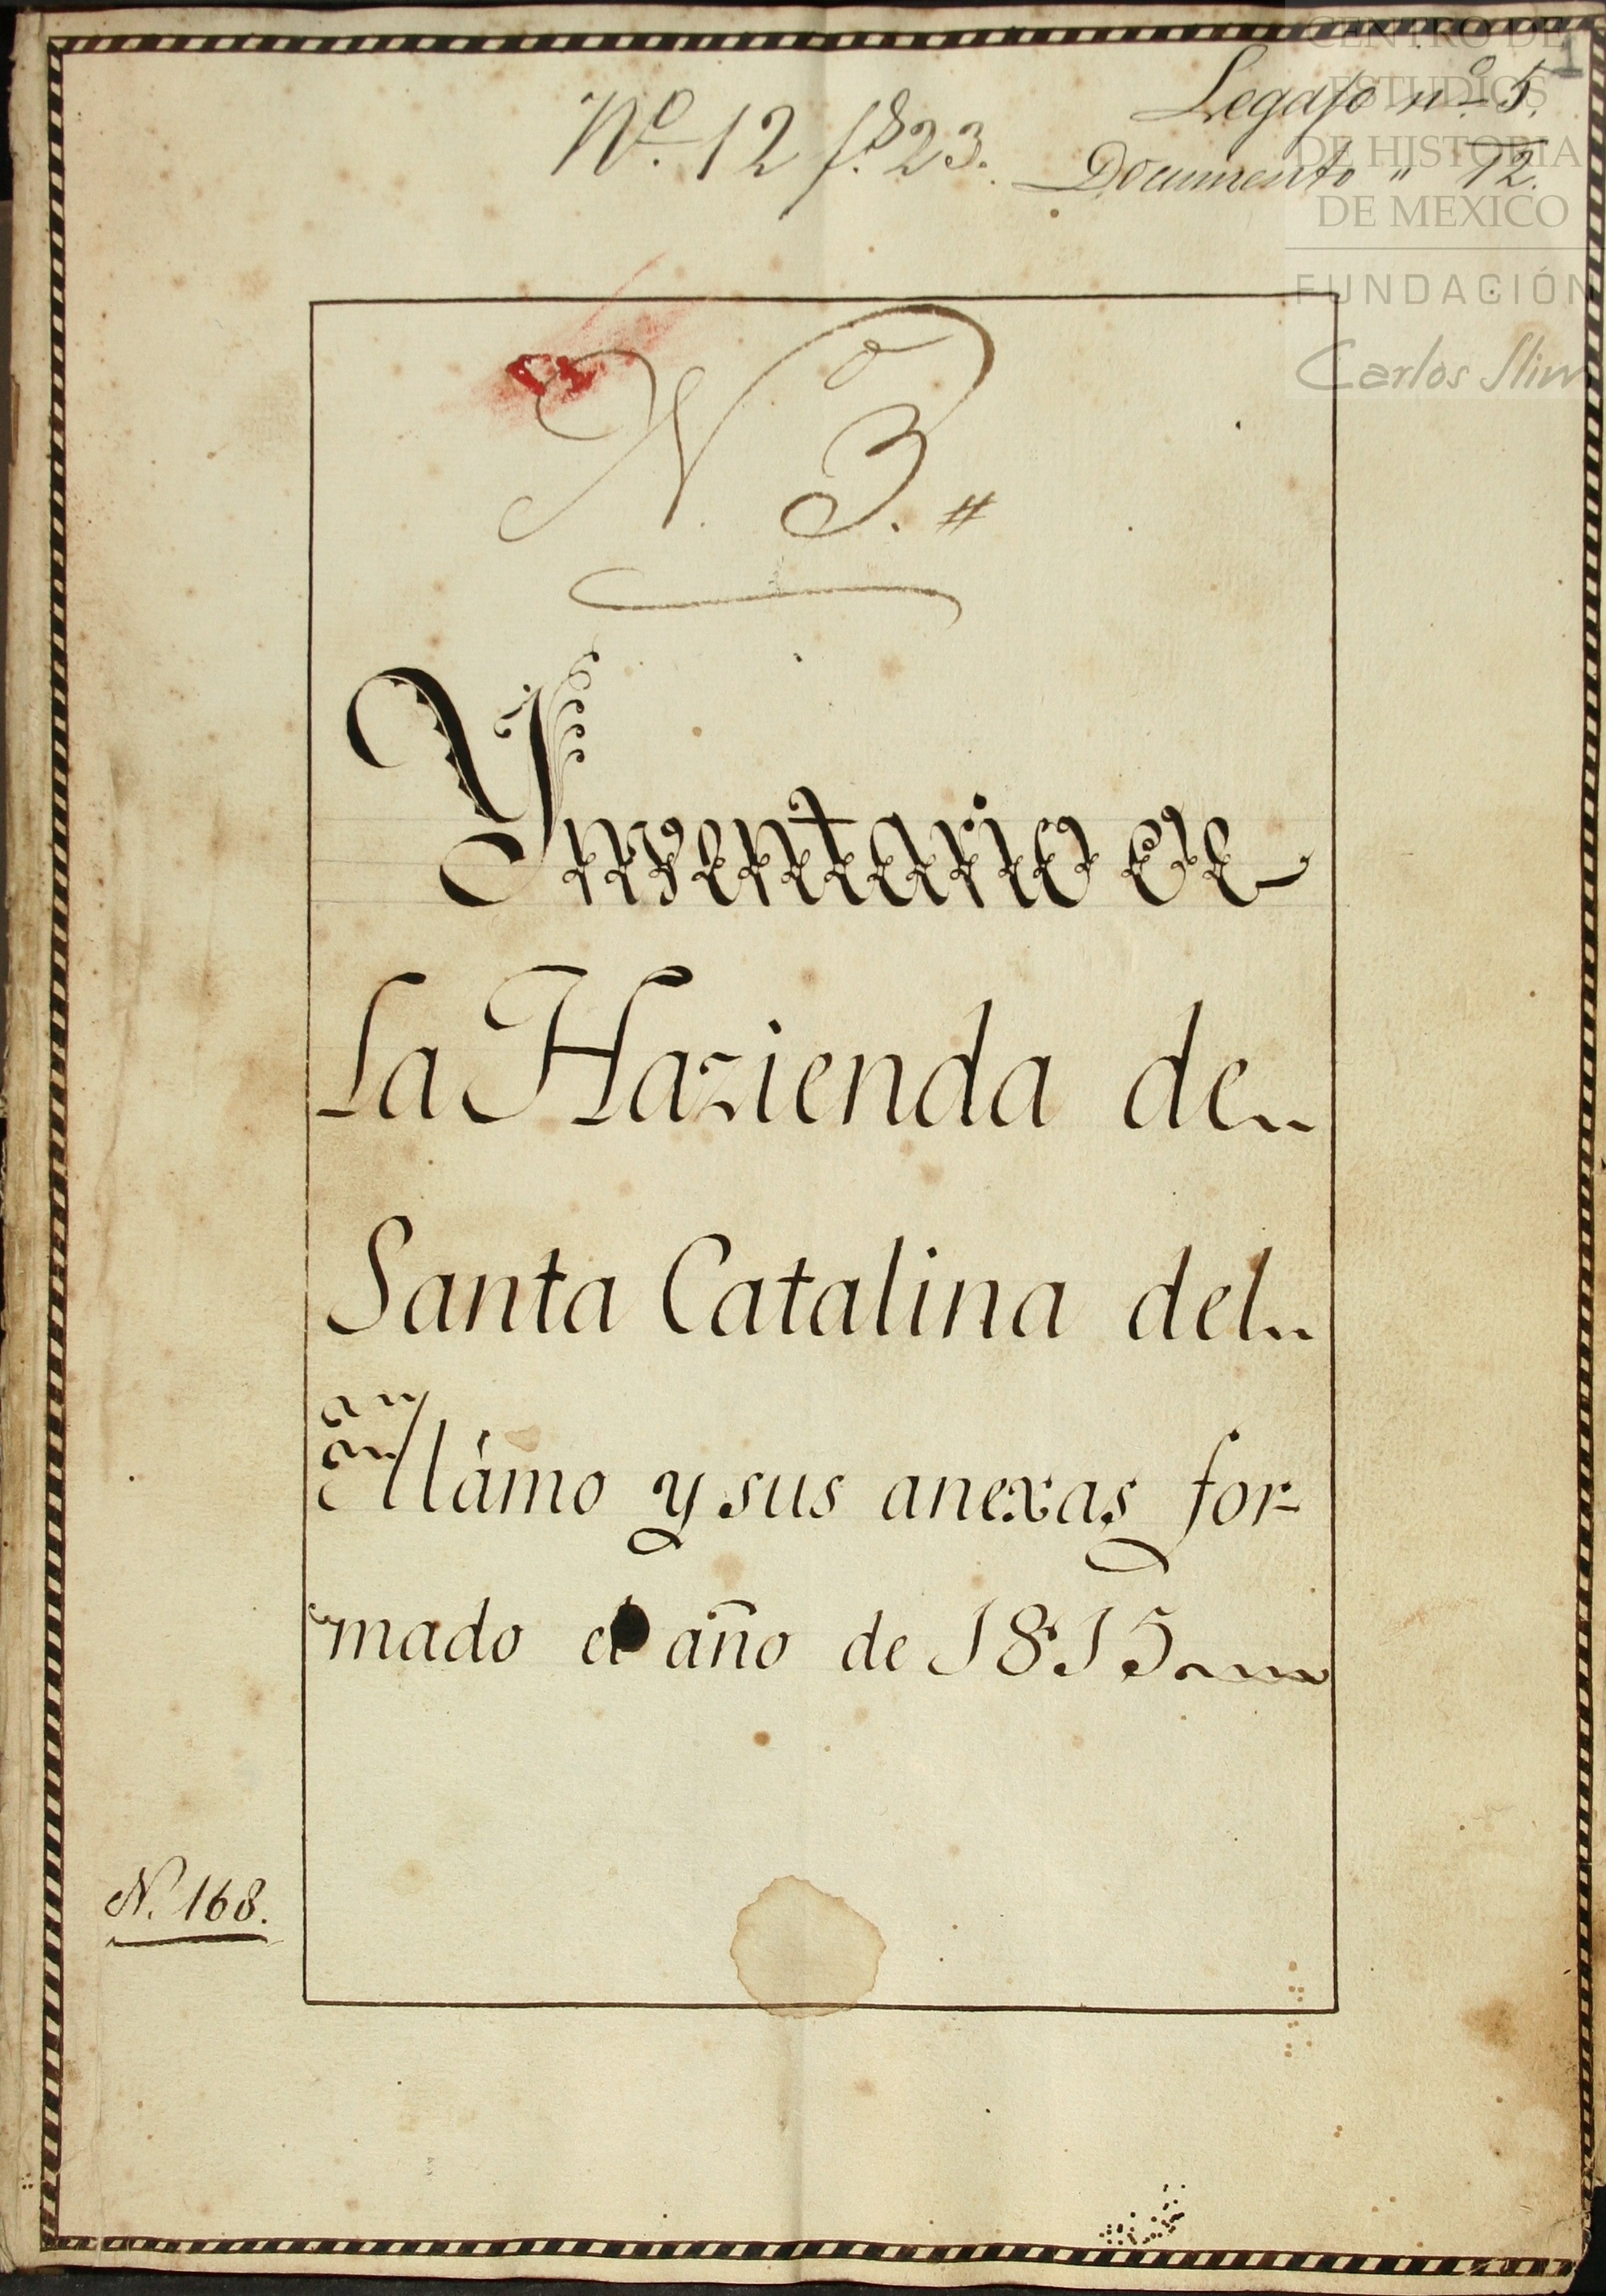 1
CENTRO DE
ESTUDIOS
DE HISTORIA
DE MEXICO
FUNDACIÓN
Carlos Slim
Legajo nº. 5.
Nº. 12 fs. 23.
Documento " 12.
Nº 3. #
Ynventario de
La Hazienda de
Santa Catalina del
Alamo y sus anexas for-
mado el año de 1815
N. 168.